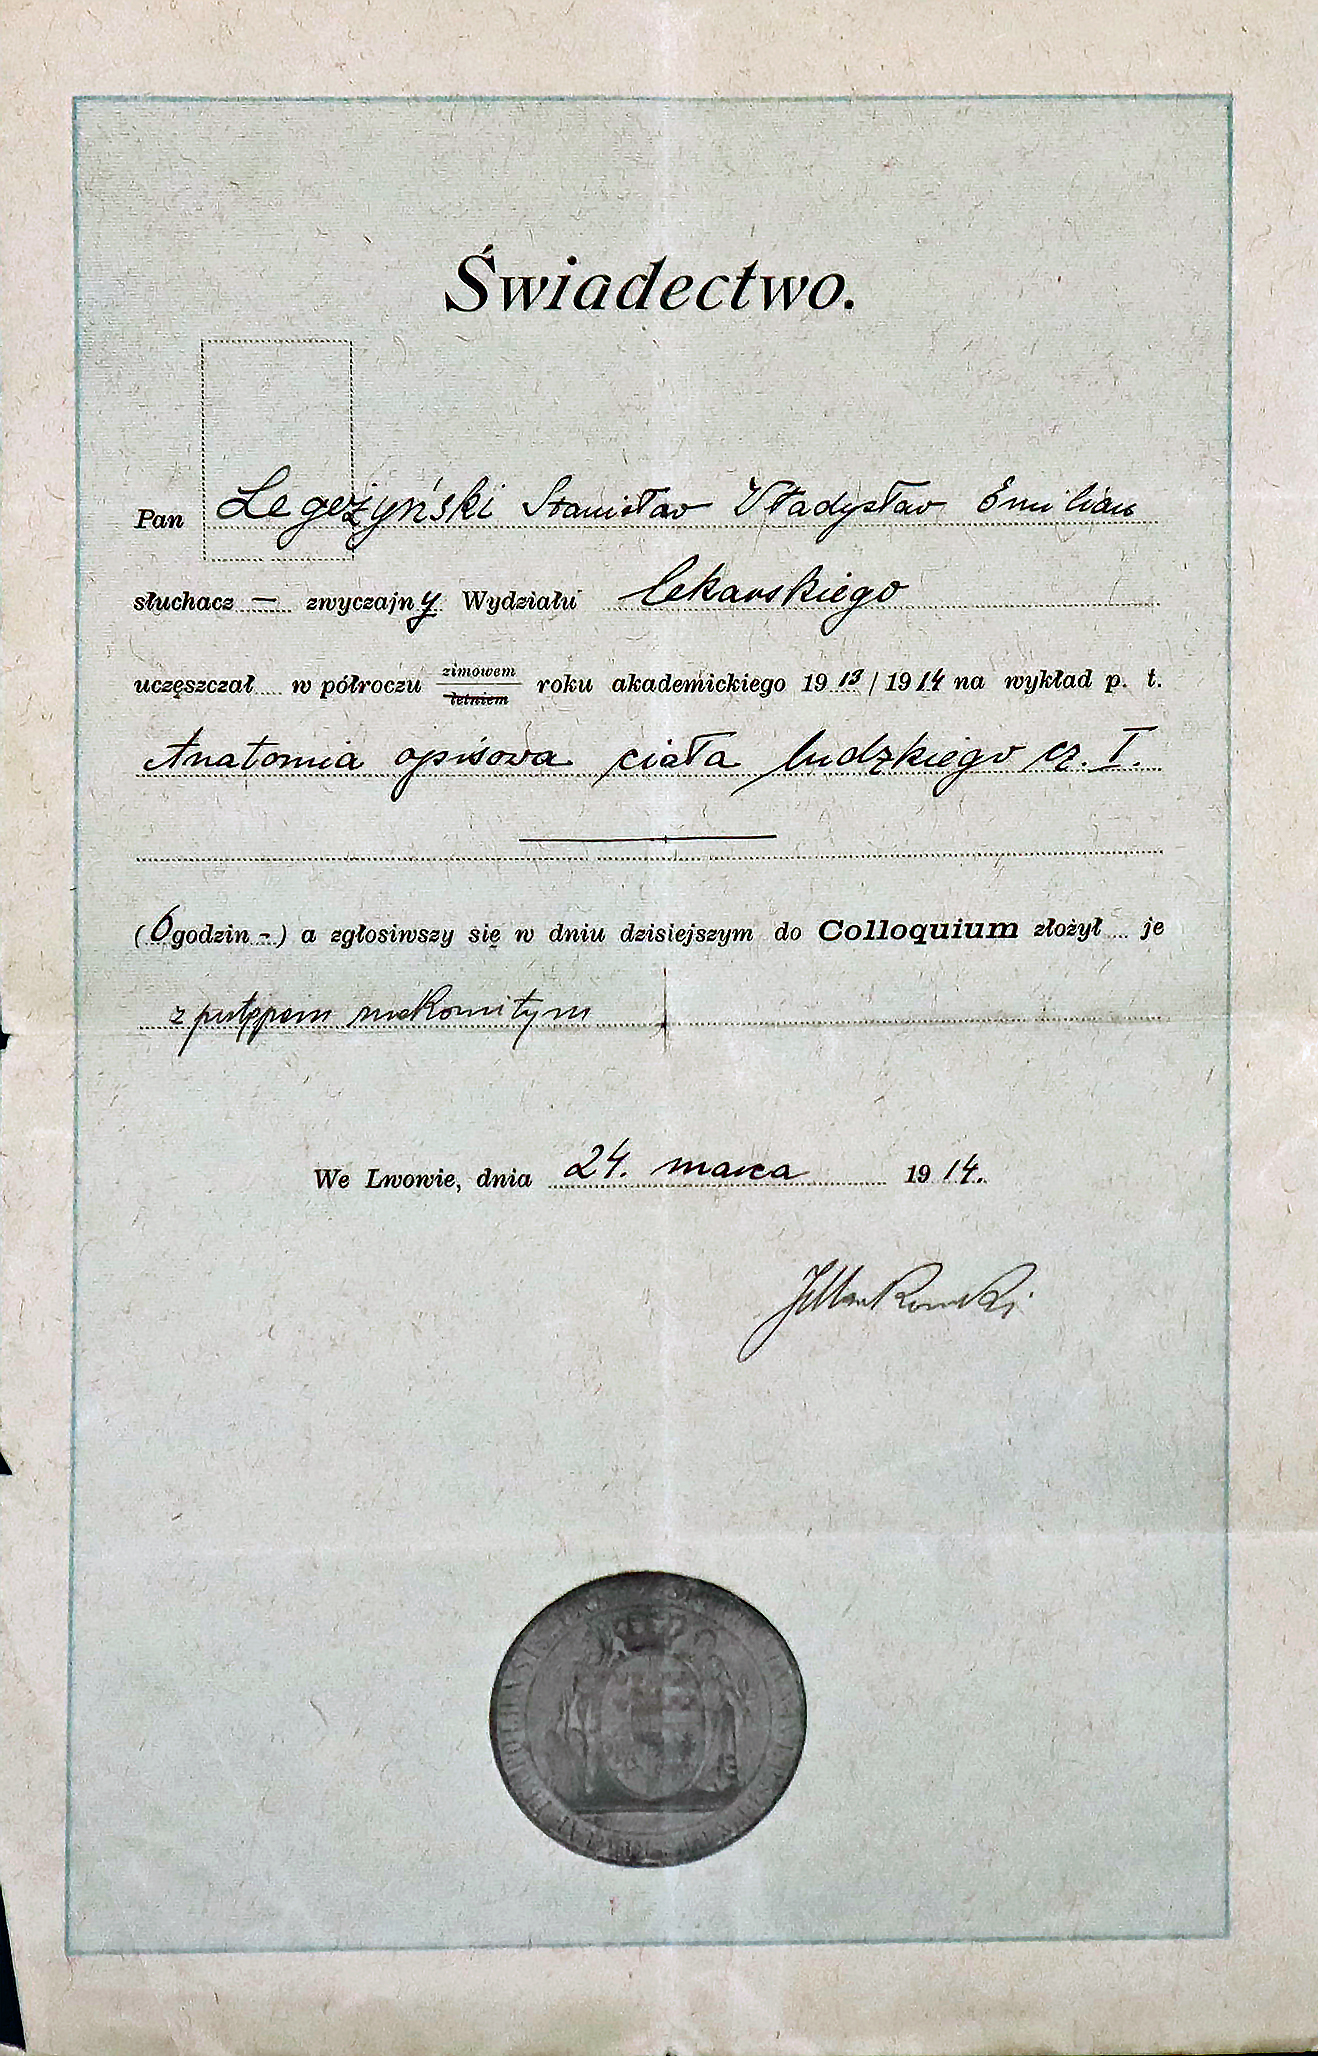 Świadectwo.
Pan Legeżyński Stanisław Władysław Emilian
słuchacz — zwyczajny Wydziału lekarskiego
uczęszczał w półroczu zimowem letniem roku akademickiego 1913/1914 na wykład p. t.
Anatomia opisowa ciała ludzkiego cz. I.
(6 godzin -) a zgłosiwszy się w dniu dzisiejszym do Colloquium złożył je
z postępem znakomitym
We Lwowie, dnia 24. marca 1914.